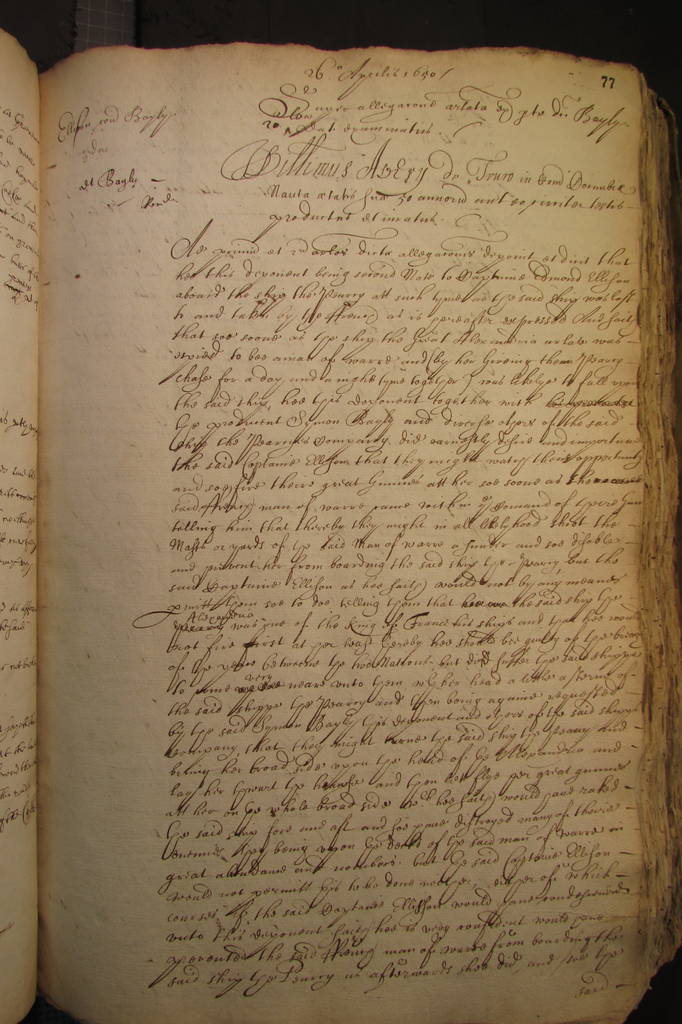 77
26o Aprilis 1650/
Super allegatione arlata ex pte dci Bayly
dat examinatus.
Ellison con Bayly
et Bayly
Willimus Avery de Truro in Com Cornubiæ
Nauta ætatis suæ 30 annorum aut eo circiter testis
productus et iuratus.
Ad primum et 2um arlos dicta allegationis deponit et dicit that
hee this deponent being second Mate to Captaine Edmond Ellison
aboard the ship the Pearry att such tyme as the said ship was lost
to and taken by the French as is hereafter expressed And saith
that soe soone as the ship the Great Alexandria arlate was
espied to bee a man of warre and (by her Giveing the Pearry
chase for a day and a night tyme together) was likelye to fall upon
the said ship, hee this deponent together with
the producent Symon Bayly and diverse others of the said
ship the Pearries Company, did earnestly desire and importune
the said Captaine Ellison that they might watch their opportunity
and soe fire theire great Gunnes att her soe soone as the
said French man of warre came within Comand of theire Guns
telling him that thereby they might in all likelyhood shoot the
Masts or yards of the said Man of warre a sunder and soe disable
and prevent her from boarding the said ship the Pearry, but the
said Captaine Ellison as hee saith would not by any meanes
pmitt them soe to doe telling them that the said ship the
Alexandria
was one of the King of France his ships and that hee would
not fire first at her least thereby hee should bee guilty of the breach
of the peace betweene the two Nations but did suffer the said shippe
to come very neare unto them with her head a little a sterne of
the said shippe the Pearry and then being againe requested
by the said Symon Bayly this deponent and others of the said shipps
Company, that they might turne the said ship the Pearry and
bring her broad side upon the head of the Alexandria and
lay her thwart the hawse and then discharge her great gunnes
att her on the whole broad side which hee saith would have raked
the said ship fore and aft and soe have destroyed many of theire
enemies they being upon the decks of the said man of warre in
great abundance and numbers. but the said Captaine Ellison
would not permitt this to be done neither, either of which
courses if the said Captaine Ellison would have condescended
unto this deponent saith hee is very confident would have
prevented the said French man of warre from boarding the
said ship the Pearry as afterwards shee did, and soe the
said